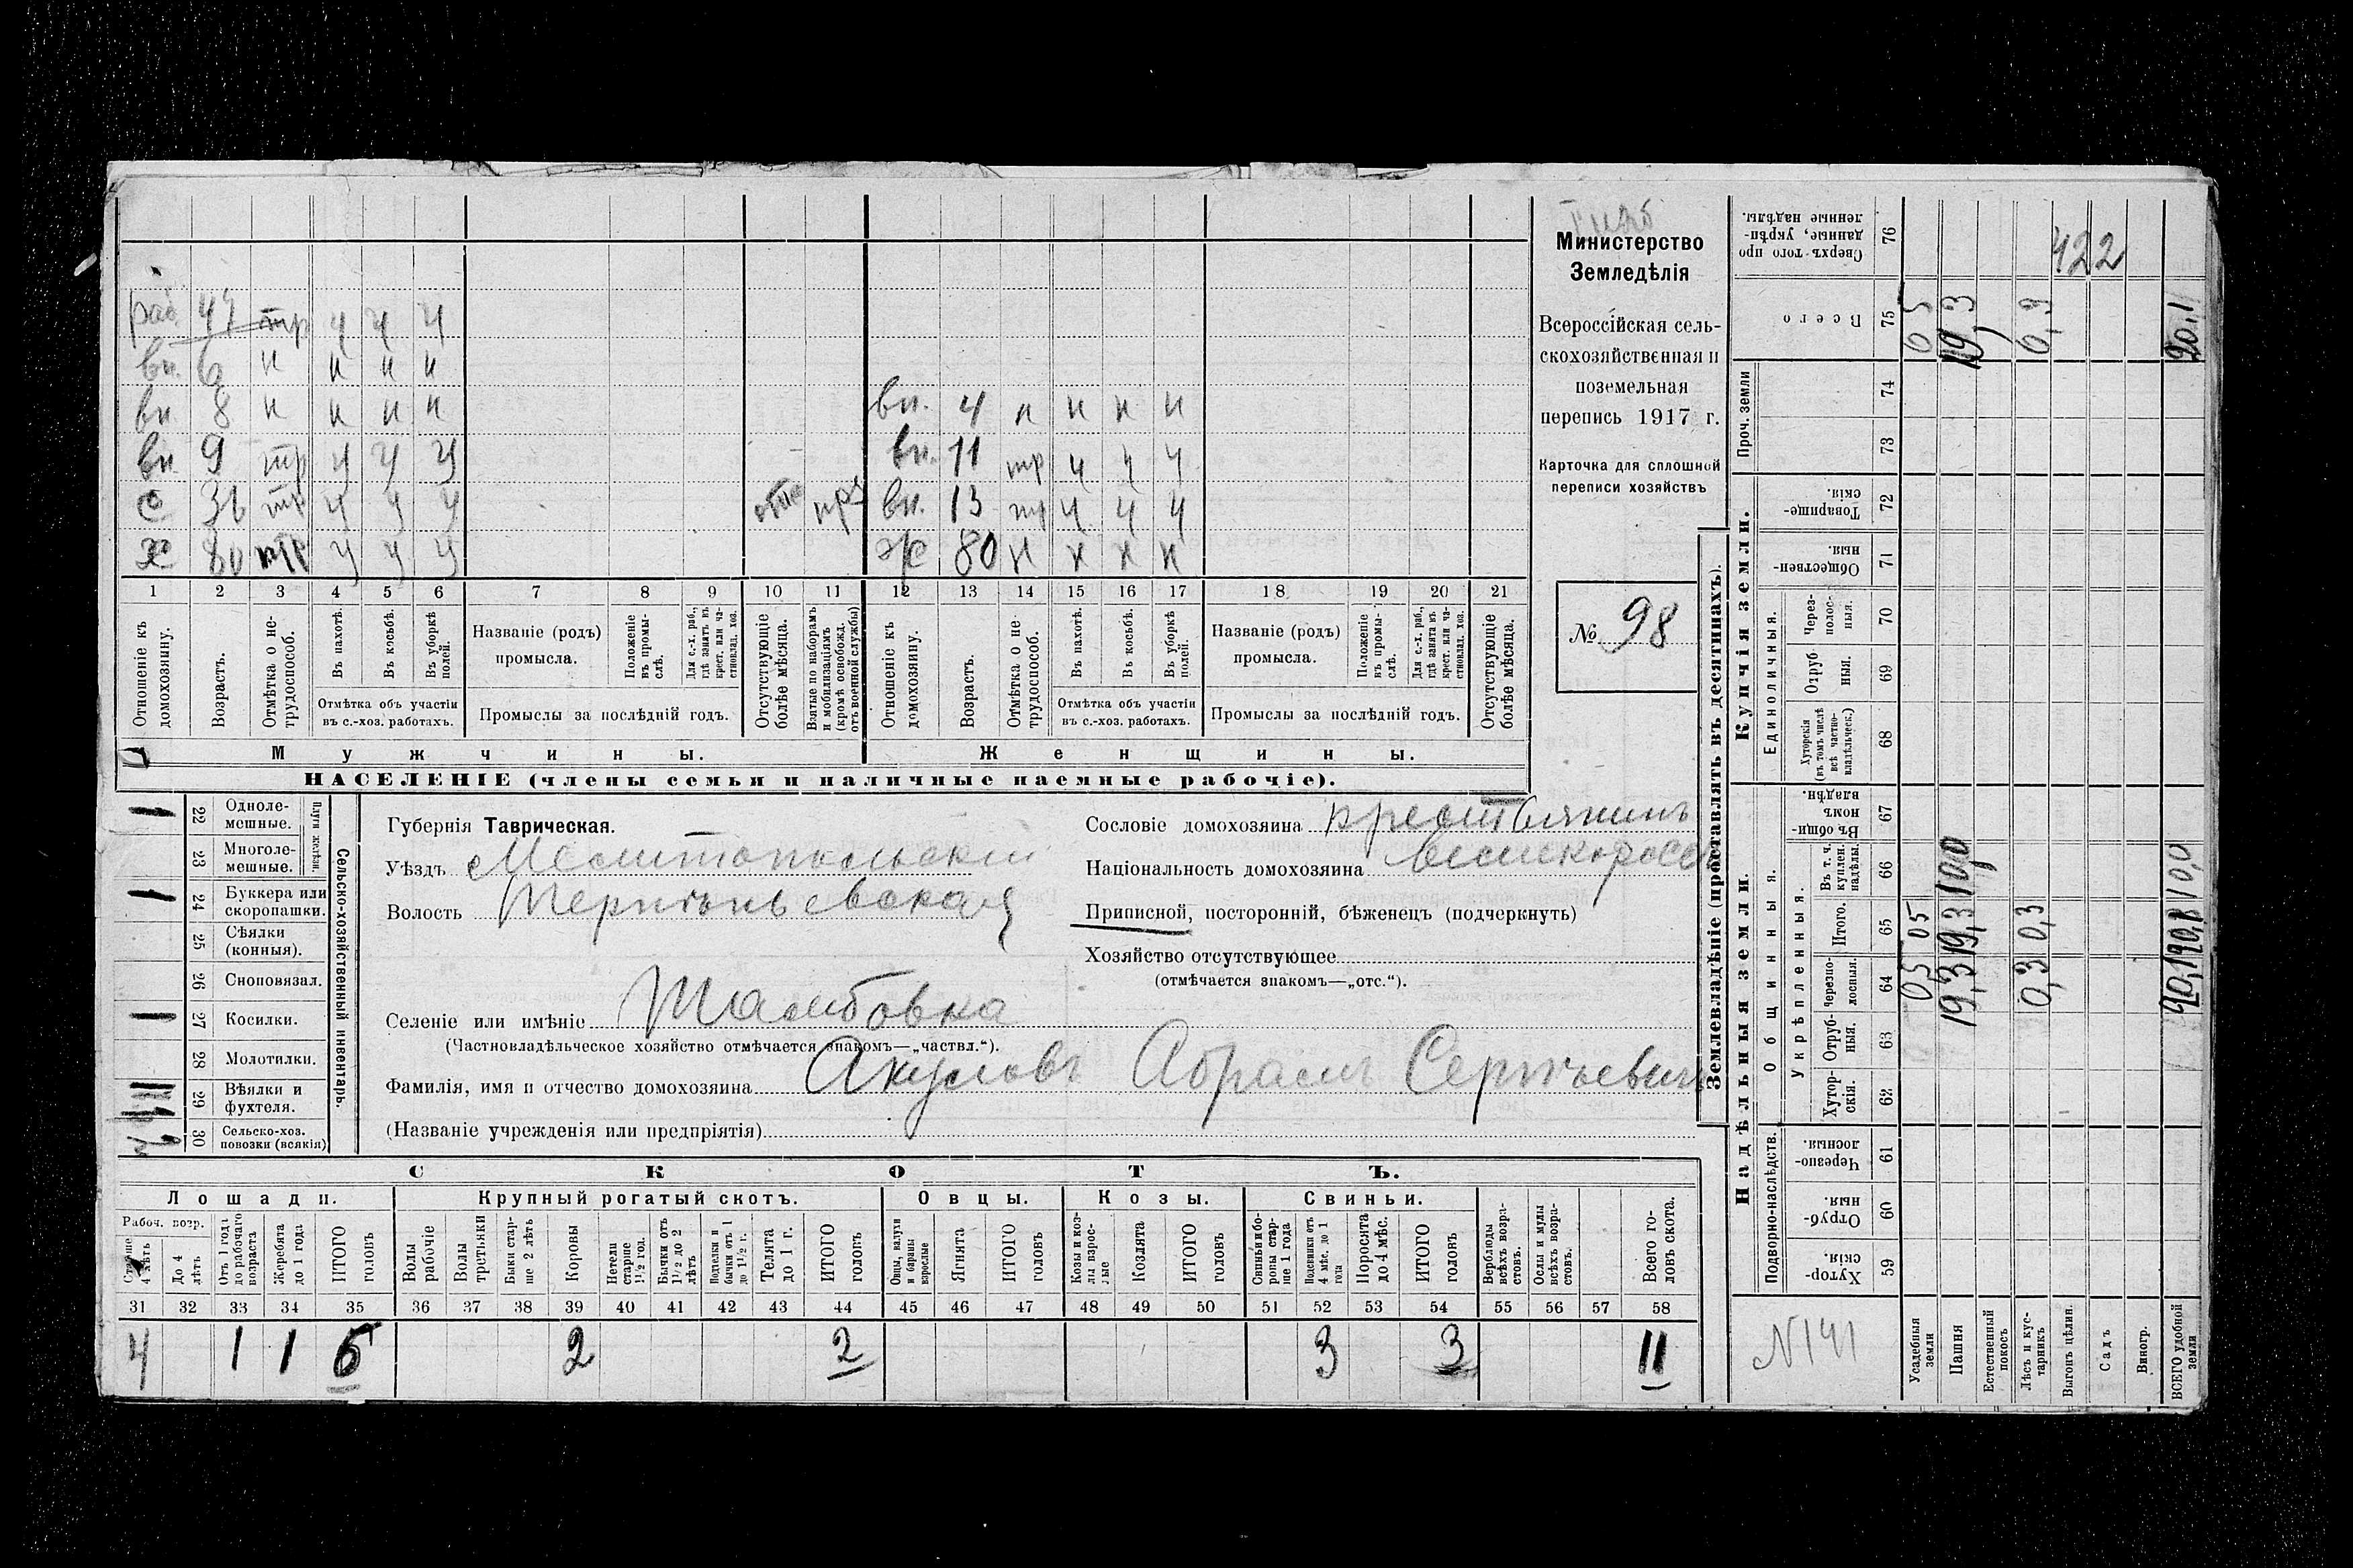 Министерство
Земледѣлія
Всероссійская сель-
скохозяйственная и
поземельная
перепись 1917 г.
Карточка для сплошной
переписи хозяйствъ
№ 98
раб. 47 тр ч ч ч
вн. 6 н н н н
вн 8 н н н н
вн. 4 н н н н
вн 9 тр ч ч ч
вн. 11 тр ч ч ч
с 36 тр ч ч ч
вн. 13 тр ч ч ч
х 80 ч ч ч
ж 80 н н н н
1 2 3 4 5 6 7 8 9 10 11 12 13 14 15 16 17 18 19 20 21
Отношеніе къ домохозяину.
Возрастъ.
Отмѣтка о не-трудоспособ.
Въ пахотѣ.
Въ косьбѣ.
Въ уборкѣ полей.
Отмѣтка объ участіи
въ с.-хоз. работахъ.
Названіе (родъ)
промысла.
Положеніе въ промы-слѣ.
Для с.-х. раб., гдѣ занятъ въ крест. или ча-стновлад. хоз.
Промыслы за послѣдній годъ.
Отсутствующіе болѣе мѣсяца.
Взятые по наборамъ и мобилизаціямъ (кромѣ освобожд. отъ военной службы)
Отношеніе къ домохозяину.
Возрастъ.
Отмѣтка о не-трудоспособ.
Въ пахотѣ.
Въ косьбѣ.
Въ уборкѣ полей.
Отмѣтка объ участіи
въ с.-хоз. работахъ.
Названіе (родъ)
промысла.
Положеніе въ промы-слѣ.
Для с.-х. раб., гдѣ занята въ крест. или ча-стновлад. хоз.
Промыслы за послѣдній годъ.
Отсутствующіе болѣе мѣсяца.
Мужчины.
Женщины.
НАСЕЛЕНІЕ (члены семьи и наличные наемные рабочіе).
Сельско-хозяйственный инвентарь.
Плуги желѣзн.
22 Одноле-мешные. 1
23 Многоле-мешные.
24 Буккера или скоропашки. 1
25 Сѣялки (конныя).
26 Сноповязал.
27 Косилки. 1
28 Молотилки.
29 Вѣялки и фухтеля.
30 Сельско-хоз. повозки (всякія)
Губернія Таврическая.
Уѣздъ Мелитопольскій
Волость Терпѣньевская
Селеніе или имѣніе Тамбовка
(Частновладѣльческое хозяйство отмѣчается знакомъ—„частвл.“).
Фамилія, имя и отчество домохозяина Акуловъ Абрамъ Сергѣевичъ
(Названіе учрежденія или предпріятія)
Сословіе домохозяина крестьянинъ
Національность домохозяина великороссъ
Приписной, посторонній, бѣженецъ (подчеркнуть)
Хозяйство отсутствующее
(отмѣчается знакомъ—„отс.“).
СКОТЪ.
Лошади.
Крупный рогатый скотъ.
Овцы.
Козы.
Свиньи.
Рабоч. возр.
Старше 4 лѣтъ
До 4 лѣтъ
Отъ 1 года до рабочаго возраста
Жеребята до 1 года
ИТОГО головъ
Волы рабочіе
Волы третьяки
Быки стар-ше 2 лѣтъ
Коровы
Нетели старше 1½ год.
Бычки отъ 1½ до 2 лѣтъ
Подтелки и бычки отъ 1 до 1½ г.
Телята до 1 г.
ИТОГО головъ
Овцы, валухи и бараны взрослые
Ягнята
ИТОГО головъ
Козы и коз-лы взрос-лые
Козлята
ИТОГО головъ
Свиньи и бо-ровы стар-ше 1 года
Подсвинки отъ 4 мѣс. до 1 года
Поросята до 4 мѣс.
ИТОГО головъ
Верблюды всѣхъ возра-стовъ.
Ослы и мулы всѣхъ возра-стовъ.
Всего го-ловъ скота.
31 32 33 34 35 36 37 38 39 40 41 42 43 44 45 46 47 48 49 50 51 52 53 54 55 56 57 58
4 1 1 6 2 2 3 3 11
Землевладѣніе (проставлять въ десятинахъ).
Купчія земли.
Надѣльныя земли.
Проч. земли
Единоличныя.
Общинныя.
Укрѣпленныя.
Подворно-наслѣдств.
Сверхъ того про-данные, укрѣп-ленные надѣлы. 76
Всего 75
74
73
Товарище-скія. 72
Обществен-ныя. 71
Через-полос-ныя. 70
Отруб-ныя. 69
Хуторскія (въ томъ числѣ всѣ частно-владѣльческ.) 68
Въ общи-номъ владѣн. 67
Въ т. ч. куплен. надѣлы. 66
Итого. 65
Черезпо-лосныя. 64
Отруб-ныя. 63
Хутор-скія. 62
Черезпо-лосныя. 61
Отруб-ныя. 60
Хутор-скія. 59
422
05 19,3 0,9 20,1
05 05
19,3 19,3 10,0
0,3 0,3
20,1 20,1 10,0
N 141
Усадебныя земли
Пашня
Естественный покосъ
Лѣсъ и кус-тарникъ
Выгонъ цѣлин.
Садъ
Виногр.
ВСЕГО удобной земли